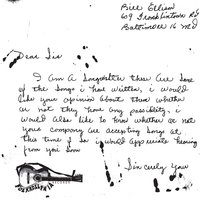 Bill Ellison
609 Franklintown Rd
Baltimore 16 Md
Dear Sir
I am a Songwriter these are some
of the songs i have written, i would
like your opinion about them whether
or not they have any possibility, i
would also like to know whether or not
your company are accepting songs at
this time if so i would appreciate hearing
from you soon
Sincerely your